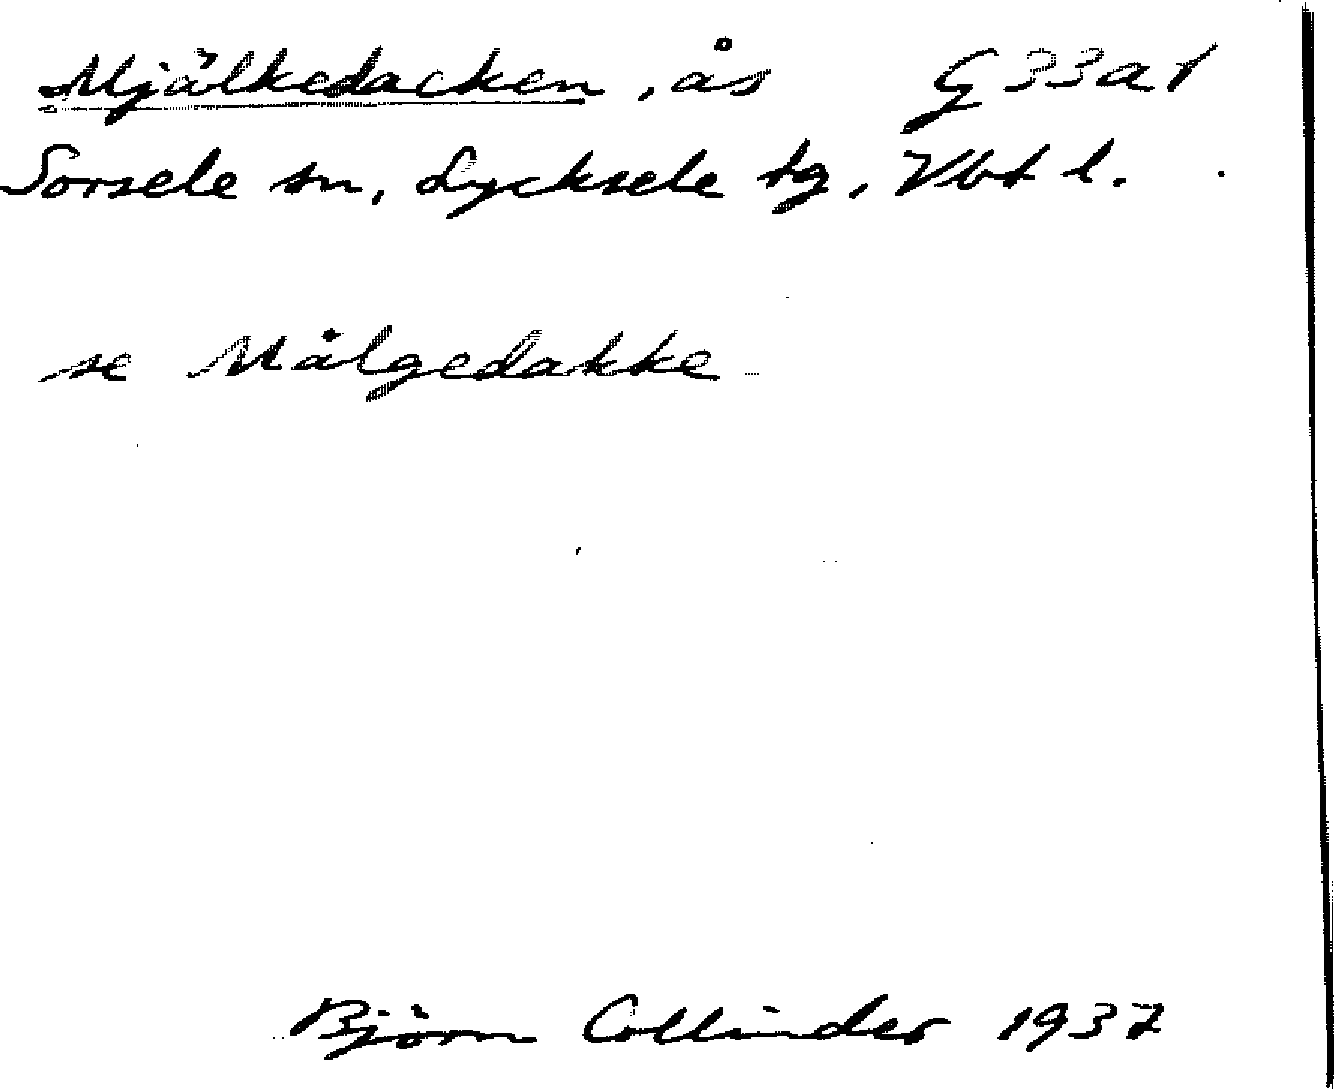 Mjölkedacken, ås G33a1
Sorsele sn, Lycksele tg, Vbt l.
se Målgedakke
Björn Collinder 1937